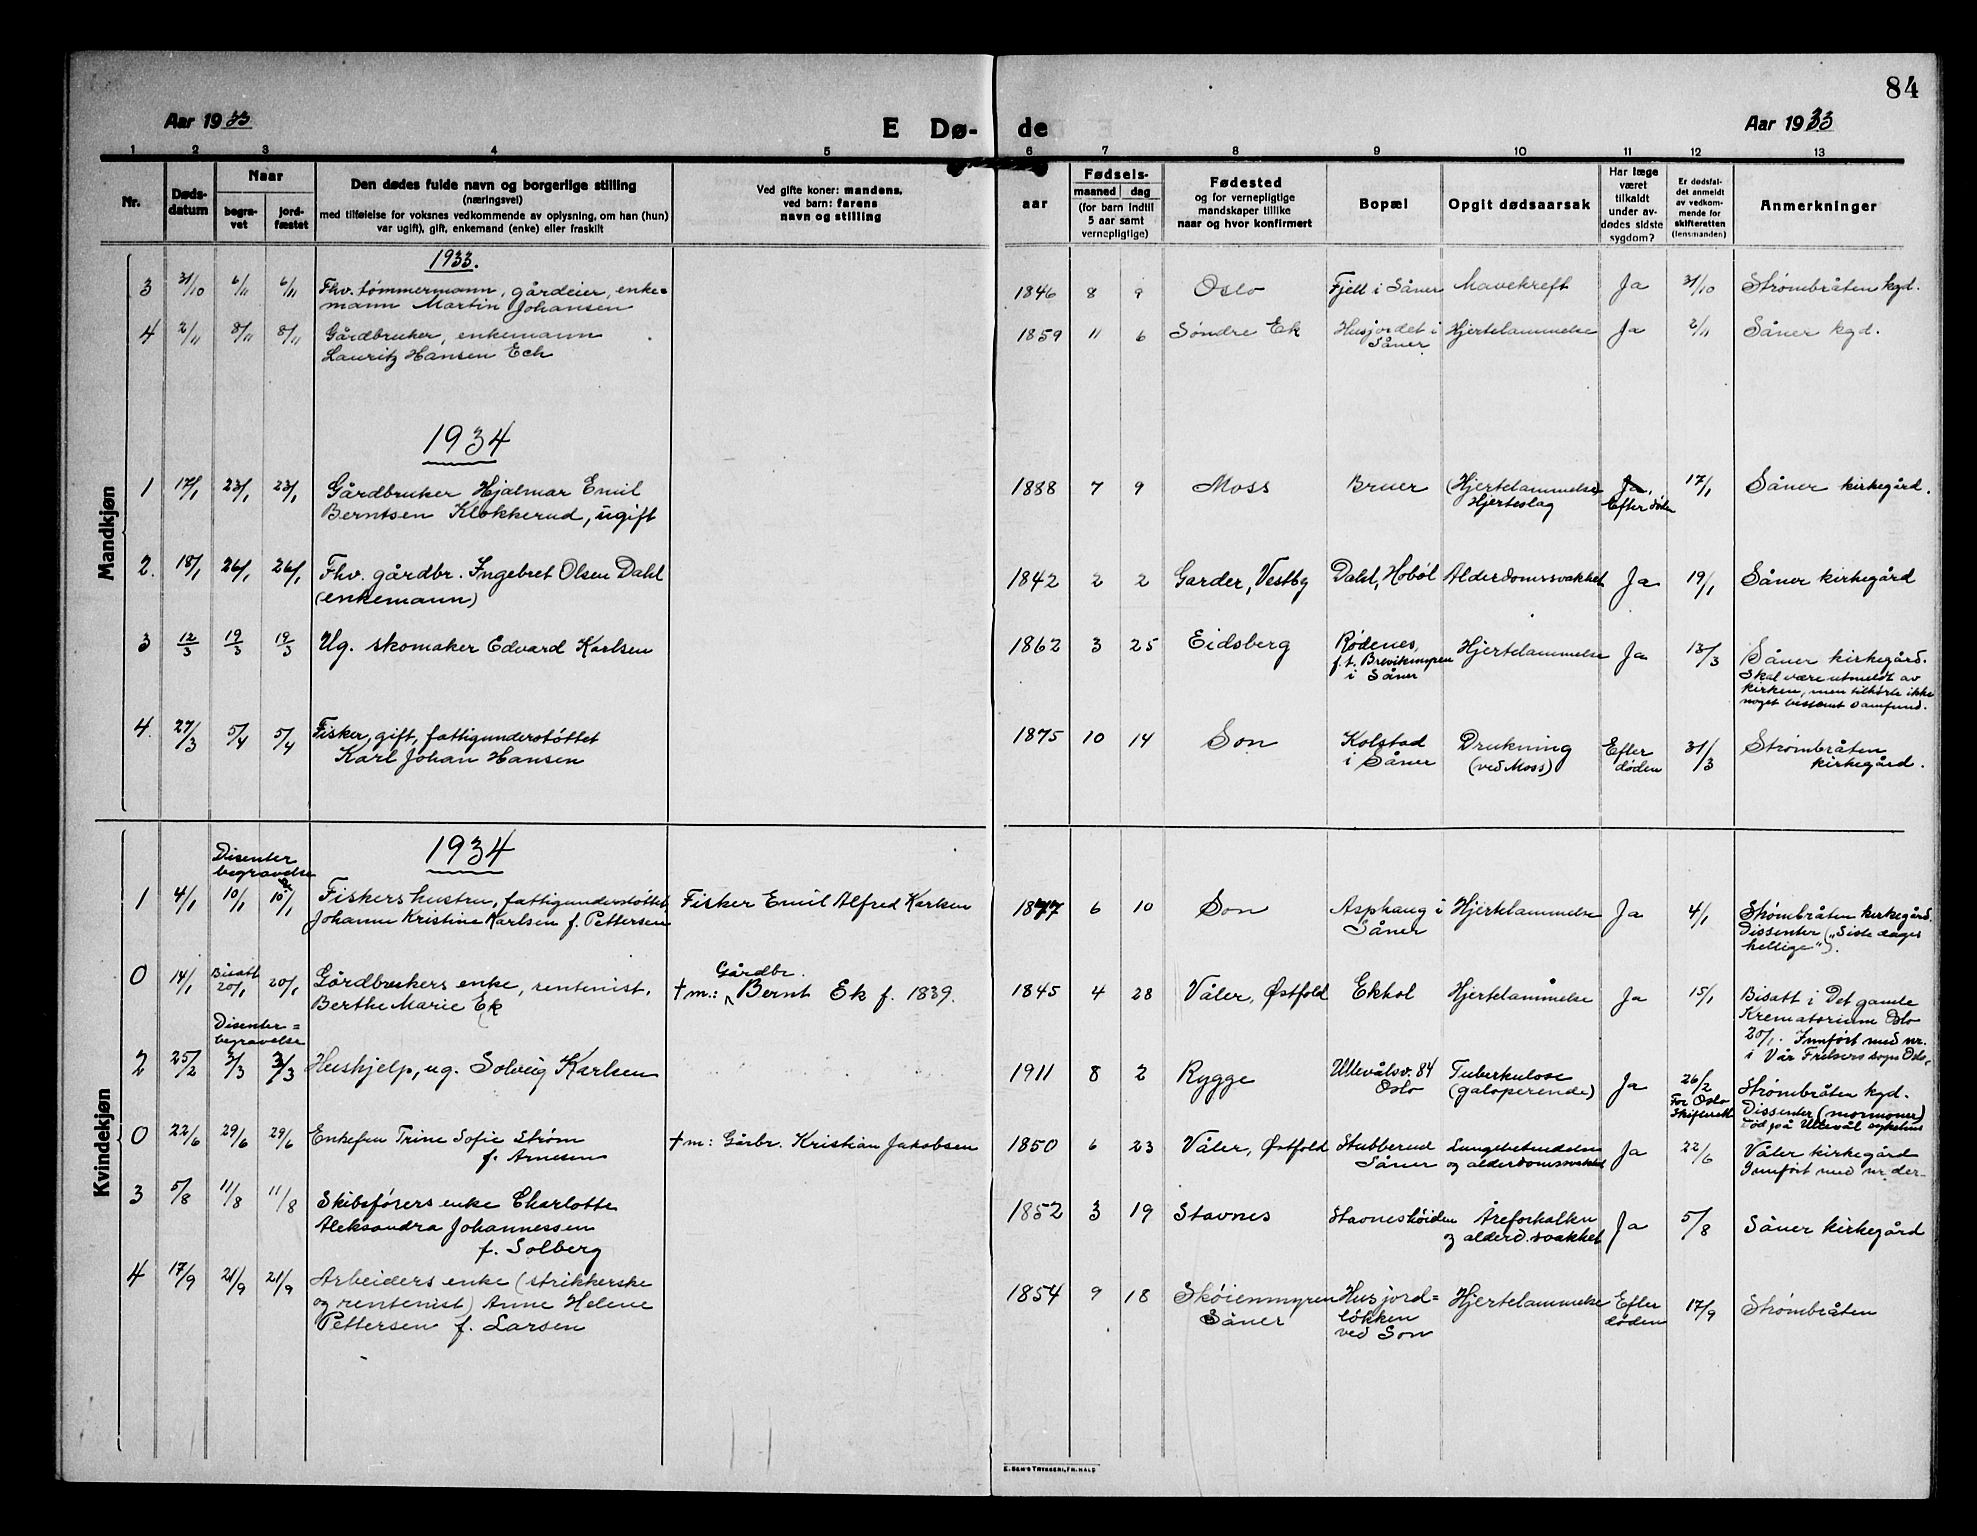 84
Aar 1933
E Dø- de
Aar 1933
1 2 3 4 5 6 7 8 9 10 11 12 13
Nr.
Døds-
datum
Naar
begra-
vet
jord-
fæstet
Den dødes fulde navn og borgerlige stilling
(næringsvei)
med tilføielse for voksnes vedkommende av oplysning, om han (hun)
var ugift), gift, enkemand (enke) eller fraskilt
Ved gifte koner: mandens,
ved barn: farens
navn og stilling
aar
Fødsels-
maaned dag
(for barn indtil
5 aar samt
vernepligtige)
Fødested
og for vernepligtige
mandskaper tillike
naar og hvor konfirmert
Bopæl
Opgit dødsaarsak
Har læge
været
tilkaldt
under av-
dødes sidste
sygdom?
Er dødsfal-
det anmeldt
av vedkom-
mende for
skifteretten
(lensmanden)
Anmerkninger
Mandkjøn
1933.
3 31/10 6/11 6/11 Fhv. tømmermann, gårdeier, enke=
mann Martin Johansen
1846 8 9 Oslo Fjell i Såner Mavekreft Ja 31/10 Strømbråten kgd.
4 2/11 8/11 8/11 Gårdbruker, enkemann
Lauritz Hansen Ech
1859 11 6 Søndre Ek Husjordet i
Såner
Hjertelammelse Ja 2/11 Såner kgd.
1934
1 17/1 23/1 23/1 Gårdbruker Hjalmar Emil
Berntsen Klokkerud, ugift
1888 7 9 Moss Bruer (Hjertelammelse)
Hjerteslag
Ja,
Efter døden
17/1 Såner kirkegård.
2. 18/1 26/1 26/1 Fhv. gårdbr. Ingebret Olsen Dahl
(enkemann)
1842 2 2 Garder, Vestby Dahl, Hobøl Alderdomssvakhet Ja 19/1 Såner kirkegård
3 12/3 19/3 19/3 Ug. skomaker Edvard Karlsen
1862 3 25 Eidsberg Rødenes,
f.t. Brevikmyren
i Såner
Hjertelammelse Ja 13/3 Såner kirkegård.
Skal være utmeldt av
kirken, men tilhørte ikke
noget bestemt samfund.
4. 27/3 5/4 5/4 Fisker, gift, fattigunderstøttet
Karl Johan Hansen
1875 10 14 Son Kolstad
i Såner
Drukning
(ved Moss)
Efter
døden
31/3 Strømbråten
kirkegård.
Kvindekjøn
1934
Disenter
begravelse
1 4/1 10/1 10/1 Fiskers hustru, fattigunderstøttet
Johanne Kristine Karlsen f. Pettersen
Fisker Emil Alfred Karlsen
1877 6 10 Son Asphaug i
Såner
Hjertelammelse Ja 4/1 Strømbråten kirkegård.
Dissenter („Siste dages
hellige").
0 14/1 Bisatt
20/1 20/1 Gårdbrukers enke, rentenist,
Berthe Marie Ek
Gårdbr.
† m.: Bernt Ek f. 1839.
1845 4 28 Våler, Østfold Ekhol Hjertelammelse Ja 15/1 Bisatt i Det gamle
Krematorium Oslo
20/1. Innført med nr.
i Vår Frelsers sogn Oslo.
Disenter=
begravelse
2 25/2 3/3 3/3 Hushjelp, ug. Solveig Karlsen
1911 8 2 Rygge Ullevålsv. 84
Oslo
Tuberkulose
(galoperende)
Ja 26/2
For Oslo
Skifterett
Strømbråten kgd.
Dissenter (mormoner)
Død på Ullevål sykehus
0 22/6 29/6 29/6 Enkefru Trine Sofie Strøm
f. Arnesen
† m: Gårbr. Kristian Jakobsen
1850 6 23 Våler, Østfold Stubberud
Såner
Lungebetendelse
og alderdomssvakhet
Ja 22/6 Våler kirkegård
Innført med nr. der-
3 5/8 11/8 11/8 Skibsførers enke Charlotte
Aleksandra Johannessen
f. Solberg
1852 3 19 Stavnes Stavneshöiden Åreforkalkn
og alderd.svakhet
Ja 5/8 Såner kirkegård
4 17/9 21/9 21/9 Arbeiders enke (strikkerske
og rentenist) Anne Helene
Pettersen f. Larsen
1854 9 18 Skøienmyren
Såner
Husjord=
løkken
ved Son
Hjertelammelse Efter
døden
17/9 Strømbråten
E. SEM'S TRYKKERI, FR.HALD